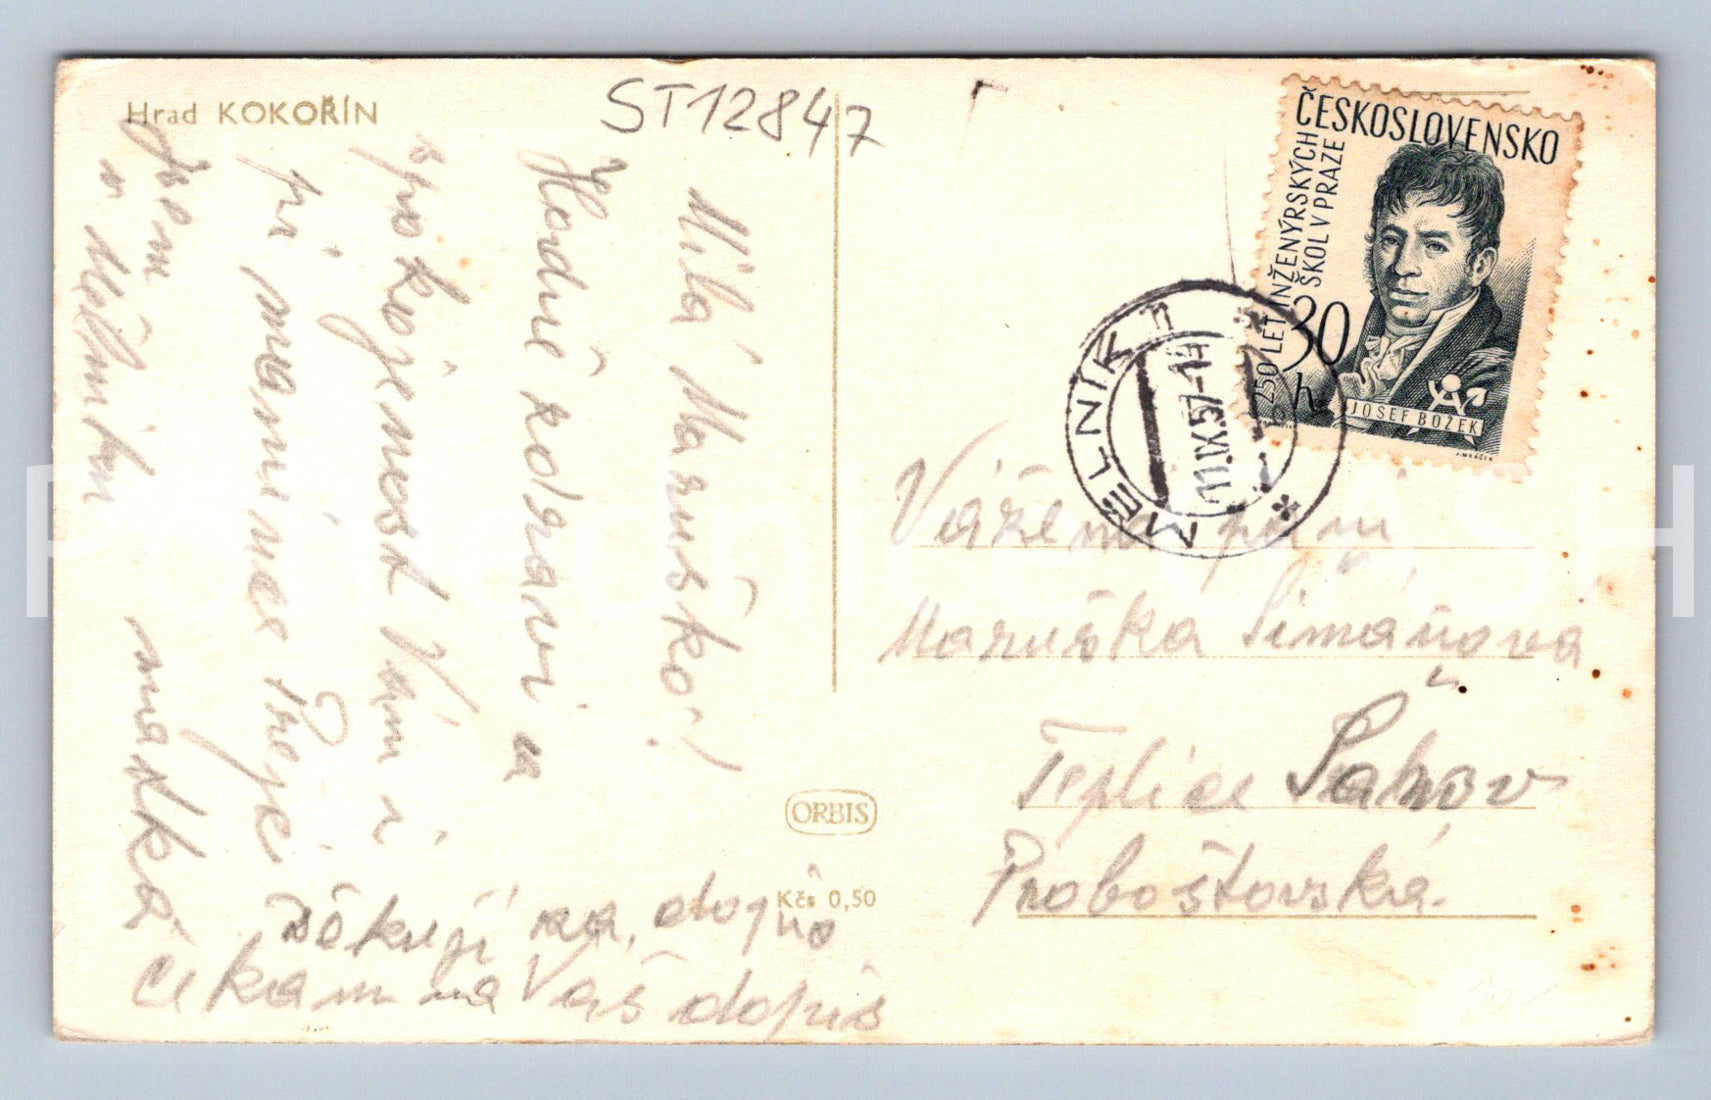 Hrad KOKOŘÍN
ST12847
Milá Maruško!
Hodně zdraví a
spokojenost Vám i
při mamince Preje
matka
Jsem
v Mělníku
Děkuji za, dopis
čekám na Váš dopis
ORBIS
Kčs 0,50
ČESKOSLOVENSKO
250 LET INŽENÝRSKÝCH
ŠKOL V PRAZE
30
h
JOSEF BOŽEK
J. MRÁČEK
MĚLNÍK 1
11.IX.57-14
Vážená paní
Maruška Šimáňová
Teplice Šanov
Proboštovská.